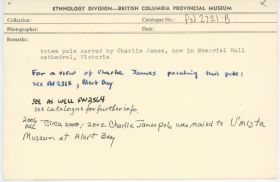 ETHNOLOGY DIVISION—BRITISH COLUMBIA PROVINCIAL MUSEUM
Collection:
Catalogue No.: PN 2721-B
Photographer:
Date:
Remarks:
totem pole carved by Charlie James, now in Memorial Hall
cathedral, Victoria
For a view of Charlie James painting this pole:
see PN 2318, Alert Bay
SEE AS WELL PN 2564
see catalogue for further info.
2006 Circa 2000-2002 Charlie James pole was moved to U'mista
Museum at Alert Bay